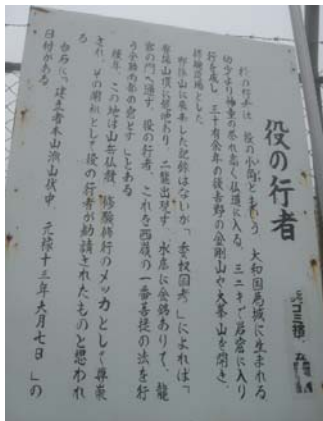 役の行者
役の行者は 役の小角ともいう 大和国葛城に生まれる
幼少より神童の誉れ高く仏道に入る、三二才で岩窟に入り
行を成し 三十有余年の後吉野の金剛山や大峯山を開き、
修験道場とした
に来山した記録はないが「委叔国考」によれば、
頂に龍池あり 二龍出現す 水底に金銘ありて、龍
宮の門へ通ず 役の行者 これを西嶺の一番菩提の法を行
う
とある
後年、この地は山岳仏教 修験修行のメッカとして尊崇
され、その開祖として役の行者が勧請されたものと思われ
る
台石に、建立者本山派山伏中 元禄十三年六月七日 」の
日付がある
ゴミ積